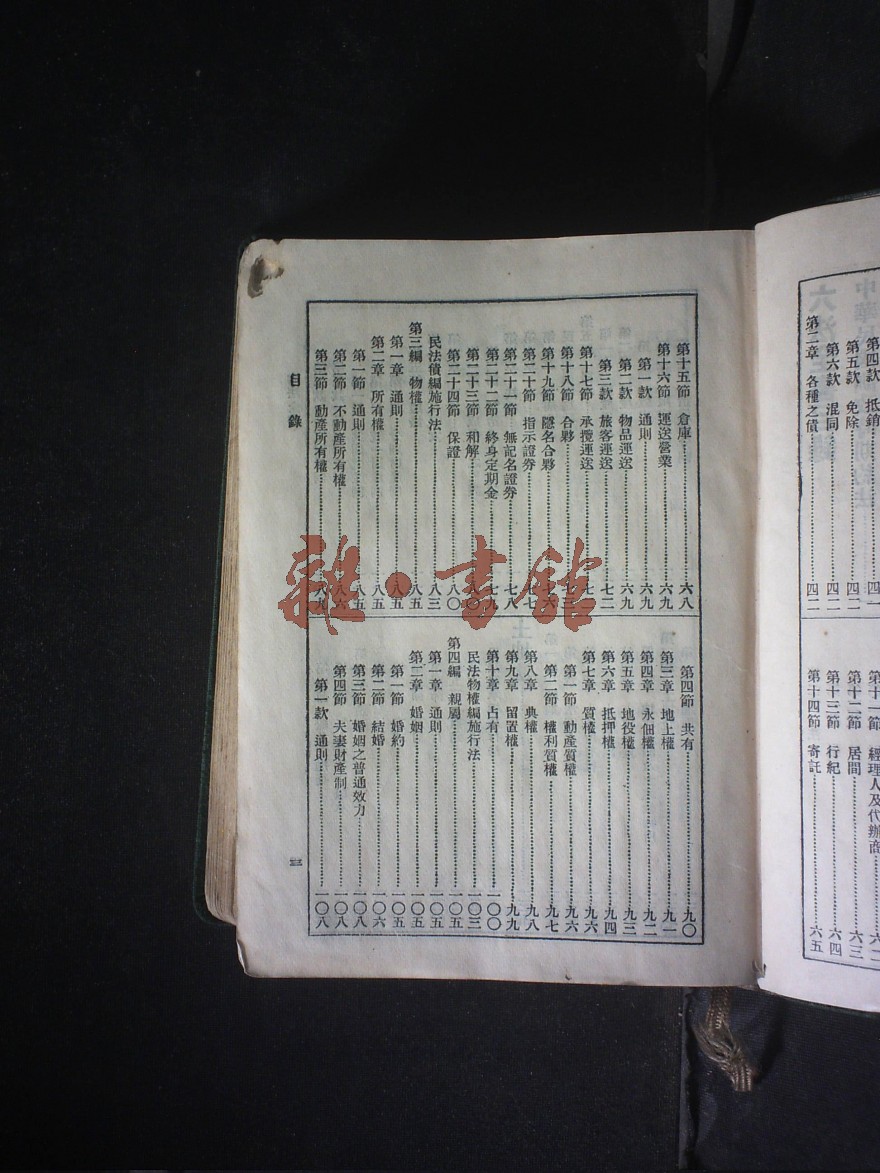 第四款 抵銷……四一
第五款 免除……四二
第六款 混同……四二
第二章 各種之債……四二
第十一節 經理人及代辦商……六二
第十二節 居間……六三
第十三節 行紀……六四
第十四節 寄託……六五
第十五節 倉庫……六八
第十六節 運送營業……六九
第一款 通則……六九
第二款 物品運送……六九
第三款 旅客運送……七二
第十七節 承攬運送……七二
第十八節 合夥……七三
第十九節 隱名合夥……七六
第二十節 指示證券……七七
第二十一節 無記名證券……七八
第二十二節 終身定期金……七九
第二十三節 和解……八〇
第二十四節 保證……八〇
民法債編施行法……八三
第三編 物權……八五
第一章 通則……八五
第二章 所有權……八五
第一節 通則……八五
第二節 不動產所有權……八六
第三節 動產所有權……八九
第四節 共有……九〇
第三章 地上權……九一
第四章 永佃權……九二
第五章 地役權……九三
第六章 抵押權……九四
第七章 質權……九六
第一節 動產質權……九六
第二節 權利質權……九七
第八章 典權……九八
第九章 留置權……九九
第十章 占有……一〇〇
民法物權編施行法……一〇三
第四編 親屬……一〇五
第一章 通則……一〇五
第二章 婚姻……一〇五
第一節 婚約……一〇五
第二節 結婚……一〇六
第三節 婚姻之普通效力……一〇八
第四節 夫妻財產制……一〇八
第一款 通則……一〇八
目錄
三
雜·書館